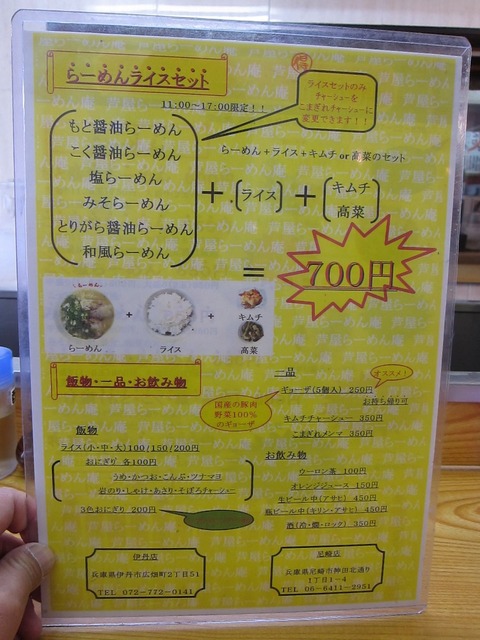 らーめんライスセット
得
11:00～17:00限定！！
ライスセットのみ
チャーシューを
こまぎれチャーシューに
変更できます！！
らーめん＋ライス＋キムチ or 高菜のセット
もと醤油らーめん
こく醤油らーめん
塩らーめん
みそらーめん
とりがら醤油らーめん
和風らーめん
＋(ライス)＋(キムチ
高菜)
＝700円
らーめん
＋
ライス
＋
キムチ
高菜
飯物・一品・お飲み物
国産の豚肉
野菜100％
のギョーザ
飯物
ライス(小・中・大)100/150/200円
おにぎり 各100円
うめ・かつお・こんぶ・ツナマヨ
岩のり・しゃけ・あさり・そぼろチャーシュー
3色おにぎり 200円
一品
オススメ！
ギョーザ(5個入) 250円
お持ち帰り可
キムチチャーシュー 350円
こまぎれメンマ 350円
お飲み物
ウーロン茶 100円
オレンジジュース 150円
生ビール中(アサヒ) 450円
瓶ビール中(キリン・アサヒ) 450円
酒(冷・燗・ロック) 350円
伊丹店
兵庫県伊丹市広畑町2丁目51
TEL 072-772-0141
尼崎店
兵庫県尼崎市神田北通り
1丁目1-4
TEL 06-6411-2951
芦屋らーめん庵